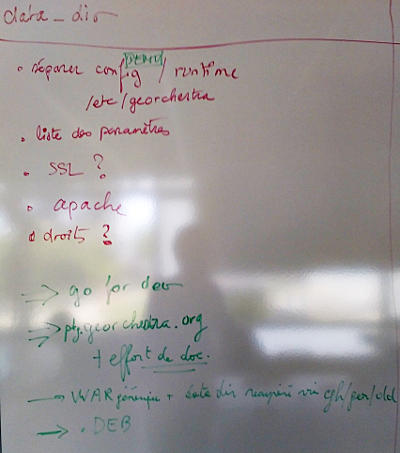 data_dir
• séparer config / runtime
/etc/georchestra
• liste des paramètres
• SSL ?
• apache
• droits ?
→ go for dev
→ georchestra.org
+ effort de doc.
→ WAR générique + data dir récupéré via
→ .DEB